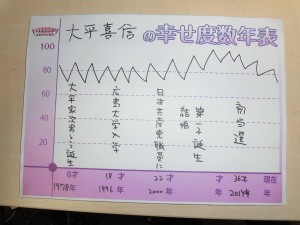 大平喜信の幸せ度数年表
100
80
60
40
20
大平家次男として誕生
広島大学入学
日本共産党職員に
結婚
第一子誕生
初当選
0才 18才 22才 才 36才 現在
1978年 1996年 2000年 年 2014年